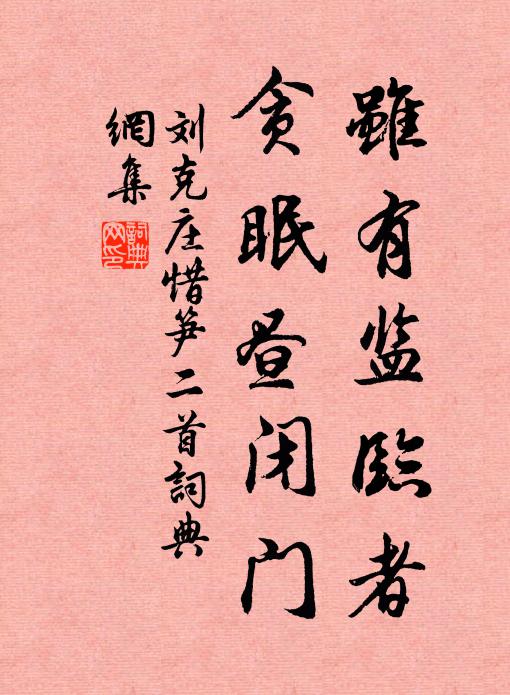 雖有监臨者
贪眠昼闭门
刘克庄惜笋二首詞典
網集
詞典
网印